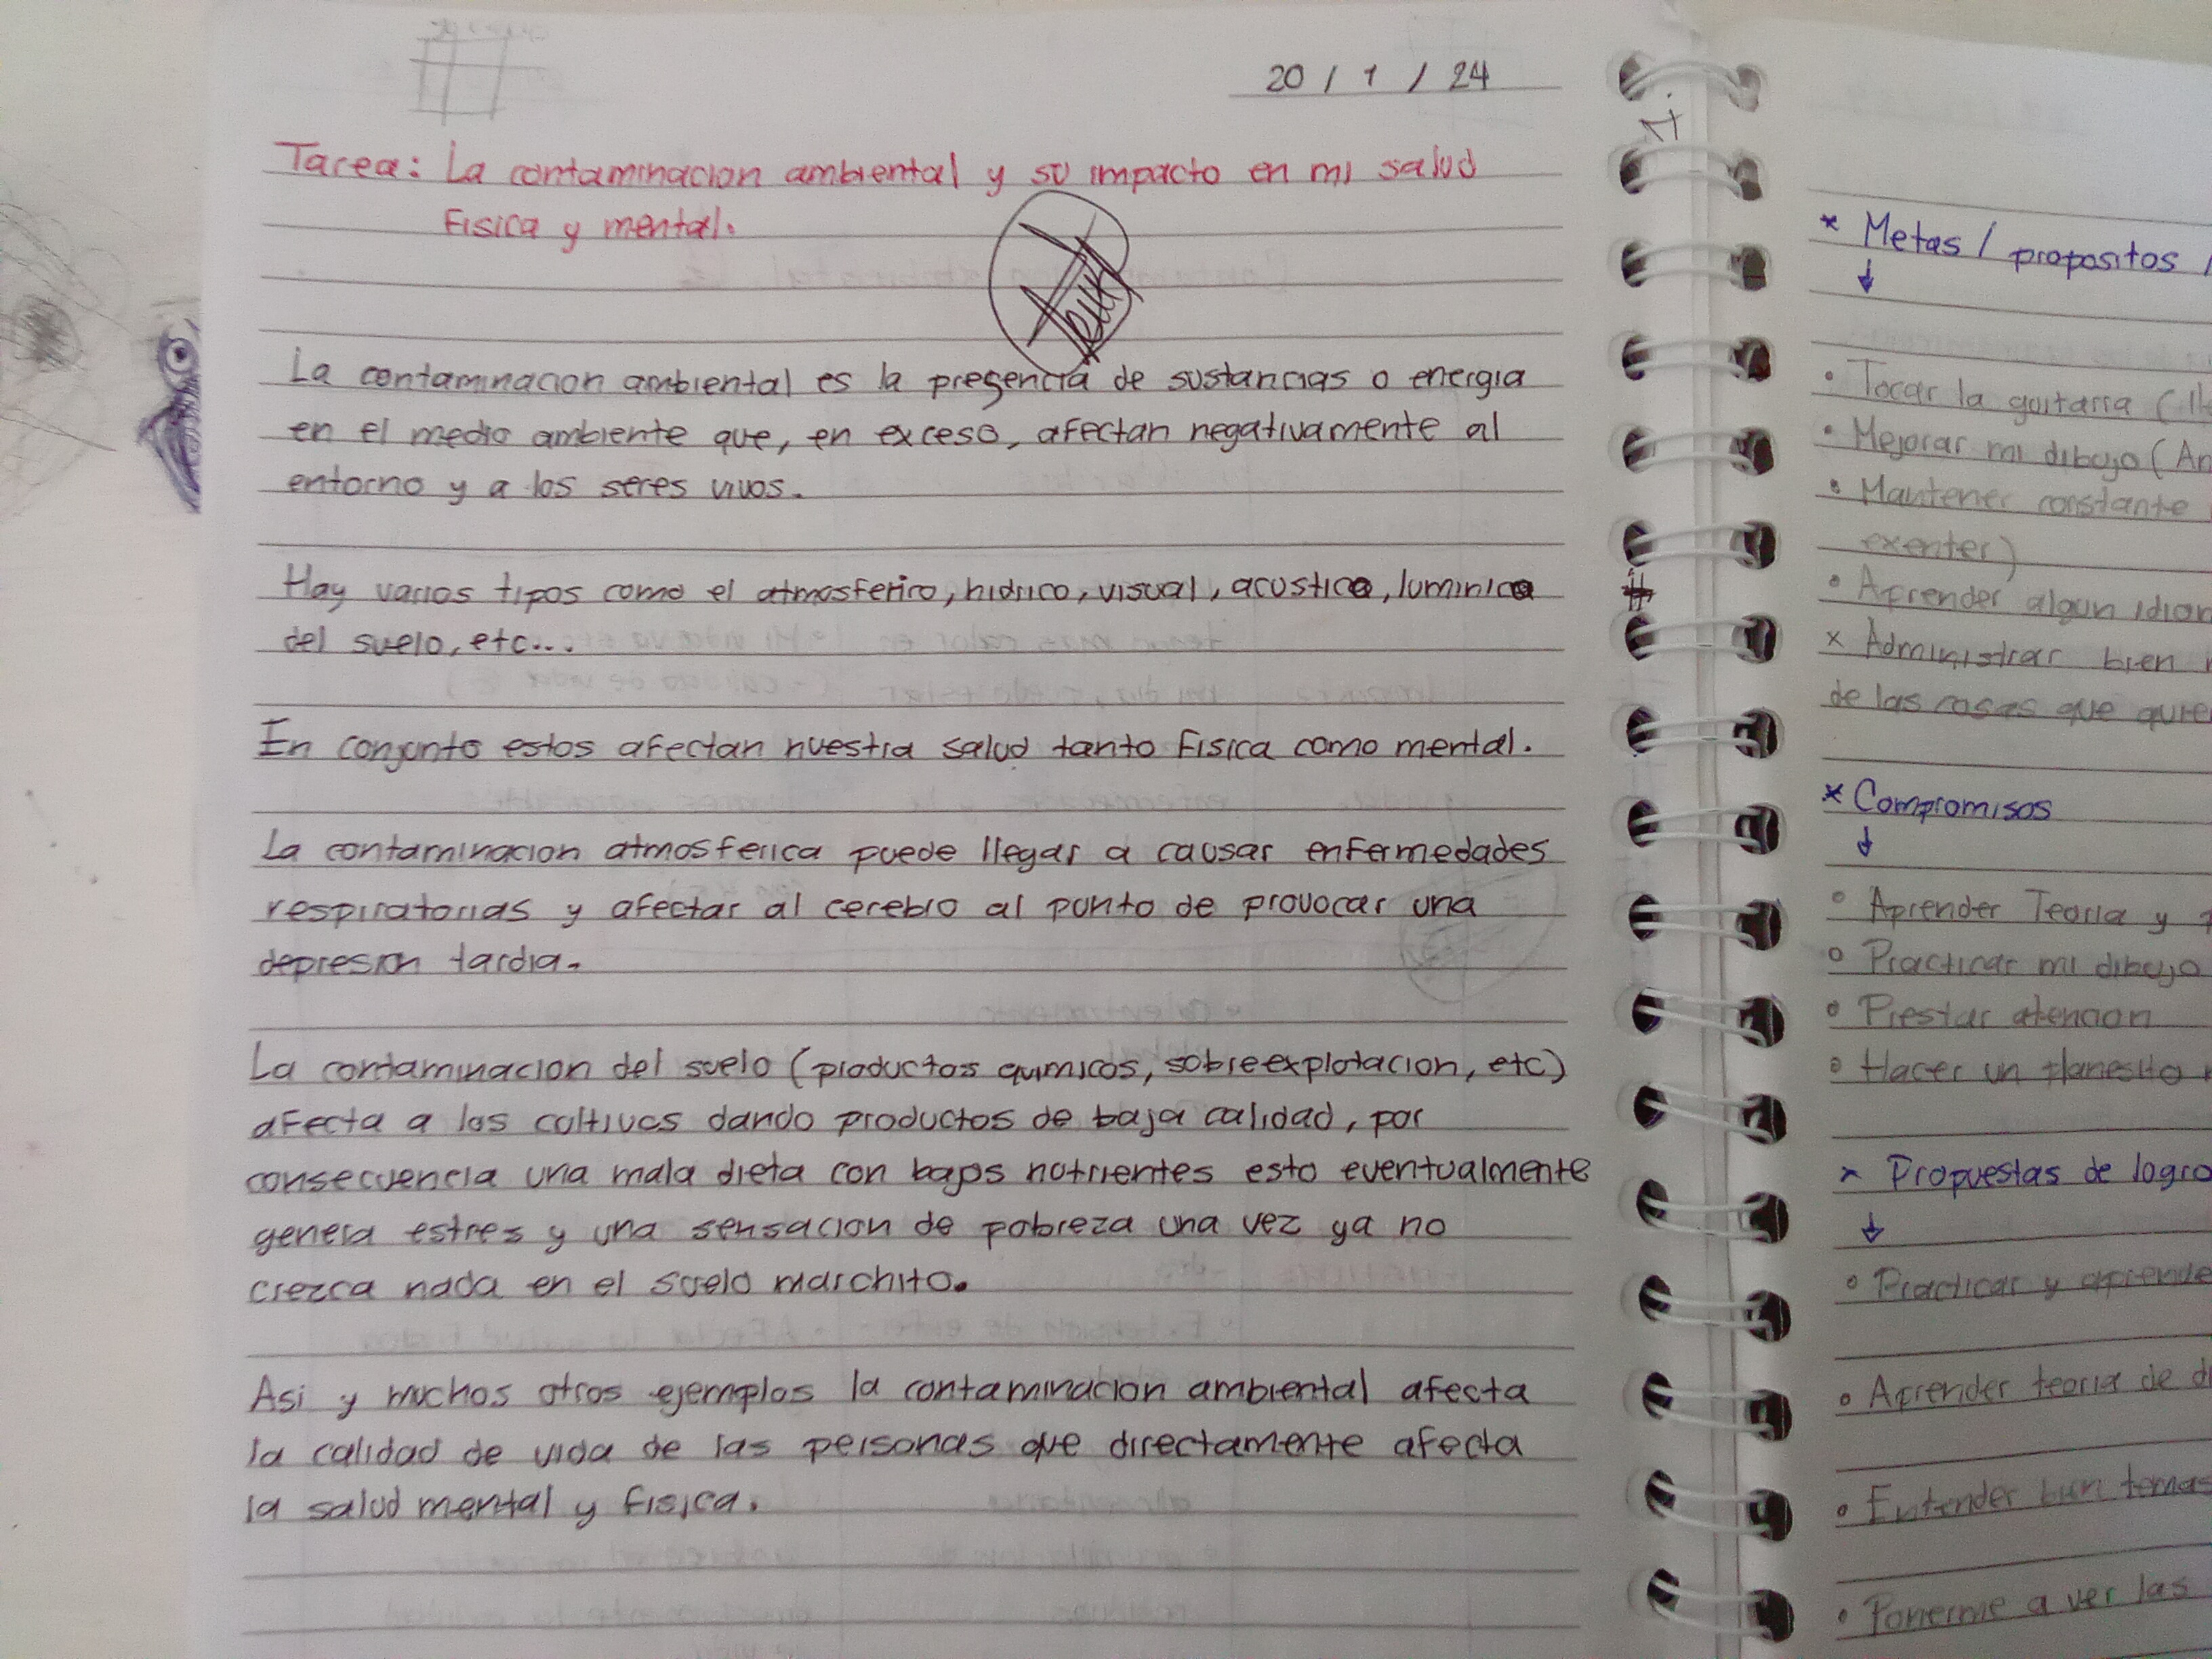 20 / 1 / 24
Tarea: La contaminacion ambiental y su impacto en mi salud
Fisica y mental.
La contaminacion ambiental es la presencia de sustancias o energia
en el medio ambiente que, en exceso, afectan negativamente al
entorno y a los seres vivos.
Hay varios tipos como el atmosferico, hidrico, visual, acustico, luminico
del suelo, etc...
En conjunto estos afectan nuestra salud tanto Fisica como mental.
La contaminacion atmosferica puede llegar a causar enfermedades
respiratorias y afectar al cerebro al punto de provocar una
depresion tardia.
La contaminacion del suelo (productos quimicos, sobreexplotacion, etc)
afecta a los cultivos dando productos de baja calidad, por
consecuencia una mala dieta con bajos nutrientes esto eventualmente
genera estres y una sensacion de pobreza una vez ya no
crezca nada en el suelo marchito.
Asi y muchos otros ejemplos la contaminacion ambiental afecta
la calidad de vida de las personas que directamente afecta
la salud mental y fisica.
* Metas / propositos /
• Tocar la guitarra (
• Mejorar mi dibujo (An
• Mantener constante
exenter)
• Aprender algun idion
x Administrar bien
de las cosas que quier
* Compromisos
° Aprender Teoria y
° Practicar mi dibujo
° Prestar atencion
° Hacer un planesito
* Propuestas de logro
° Practicar y aprende
° Aprender teoria de di
° Entender bien temas
• Ponerme a ver las